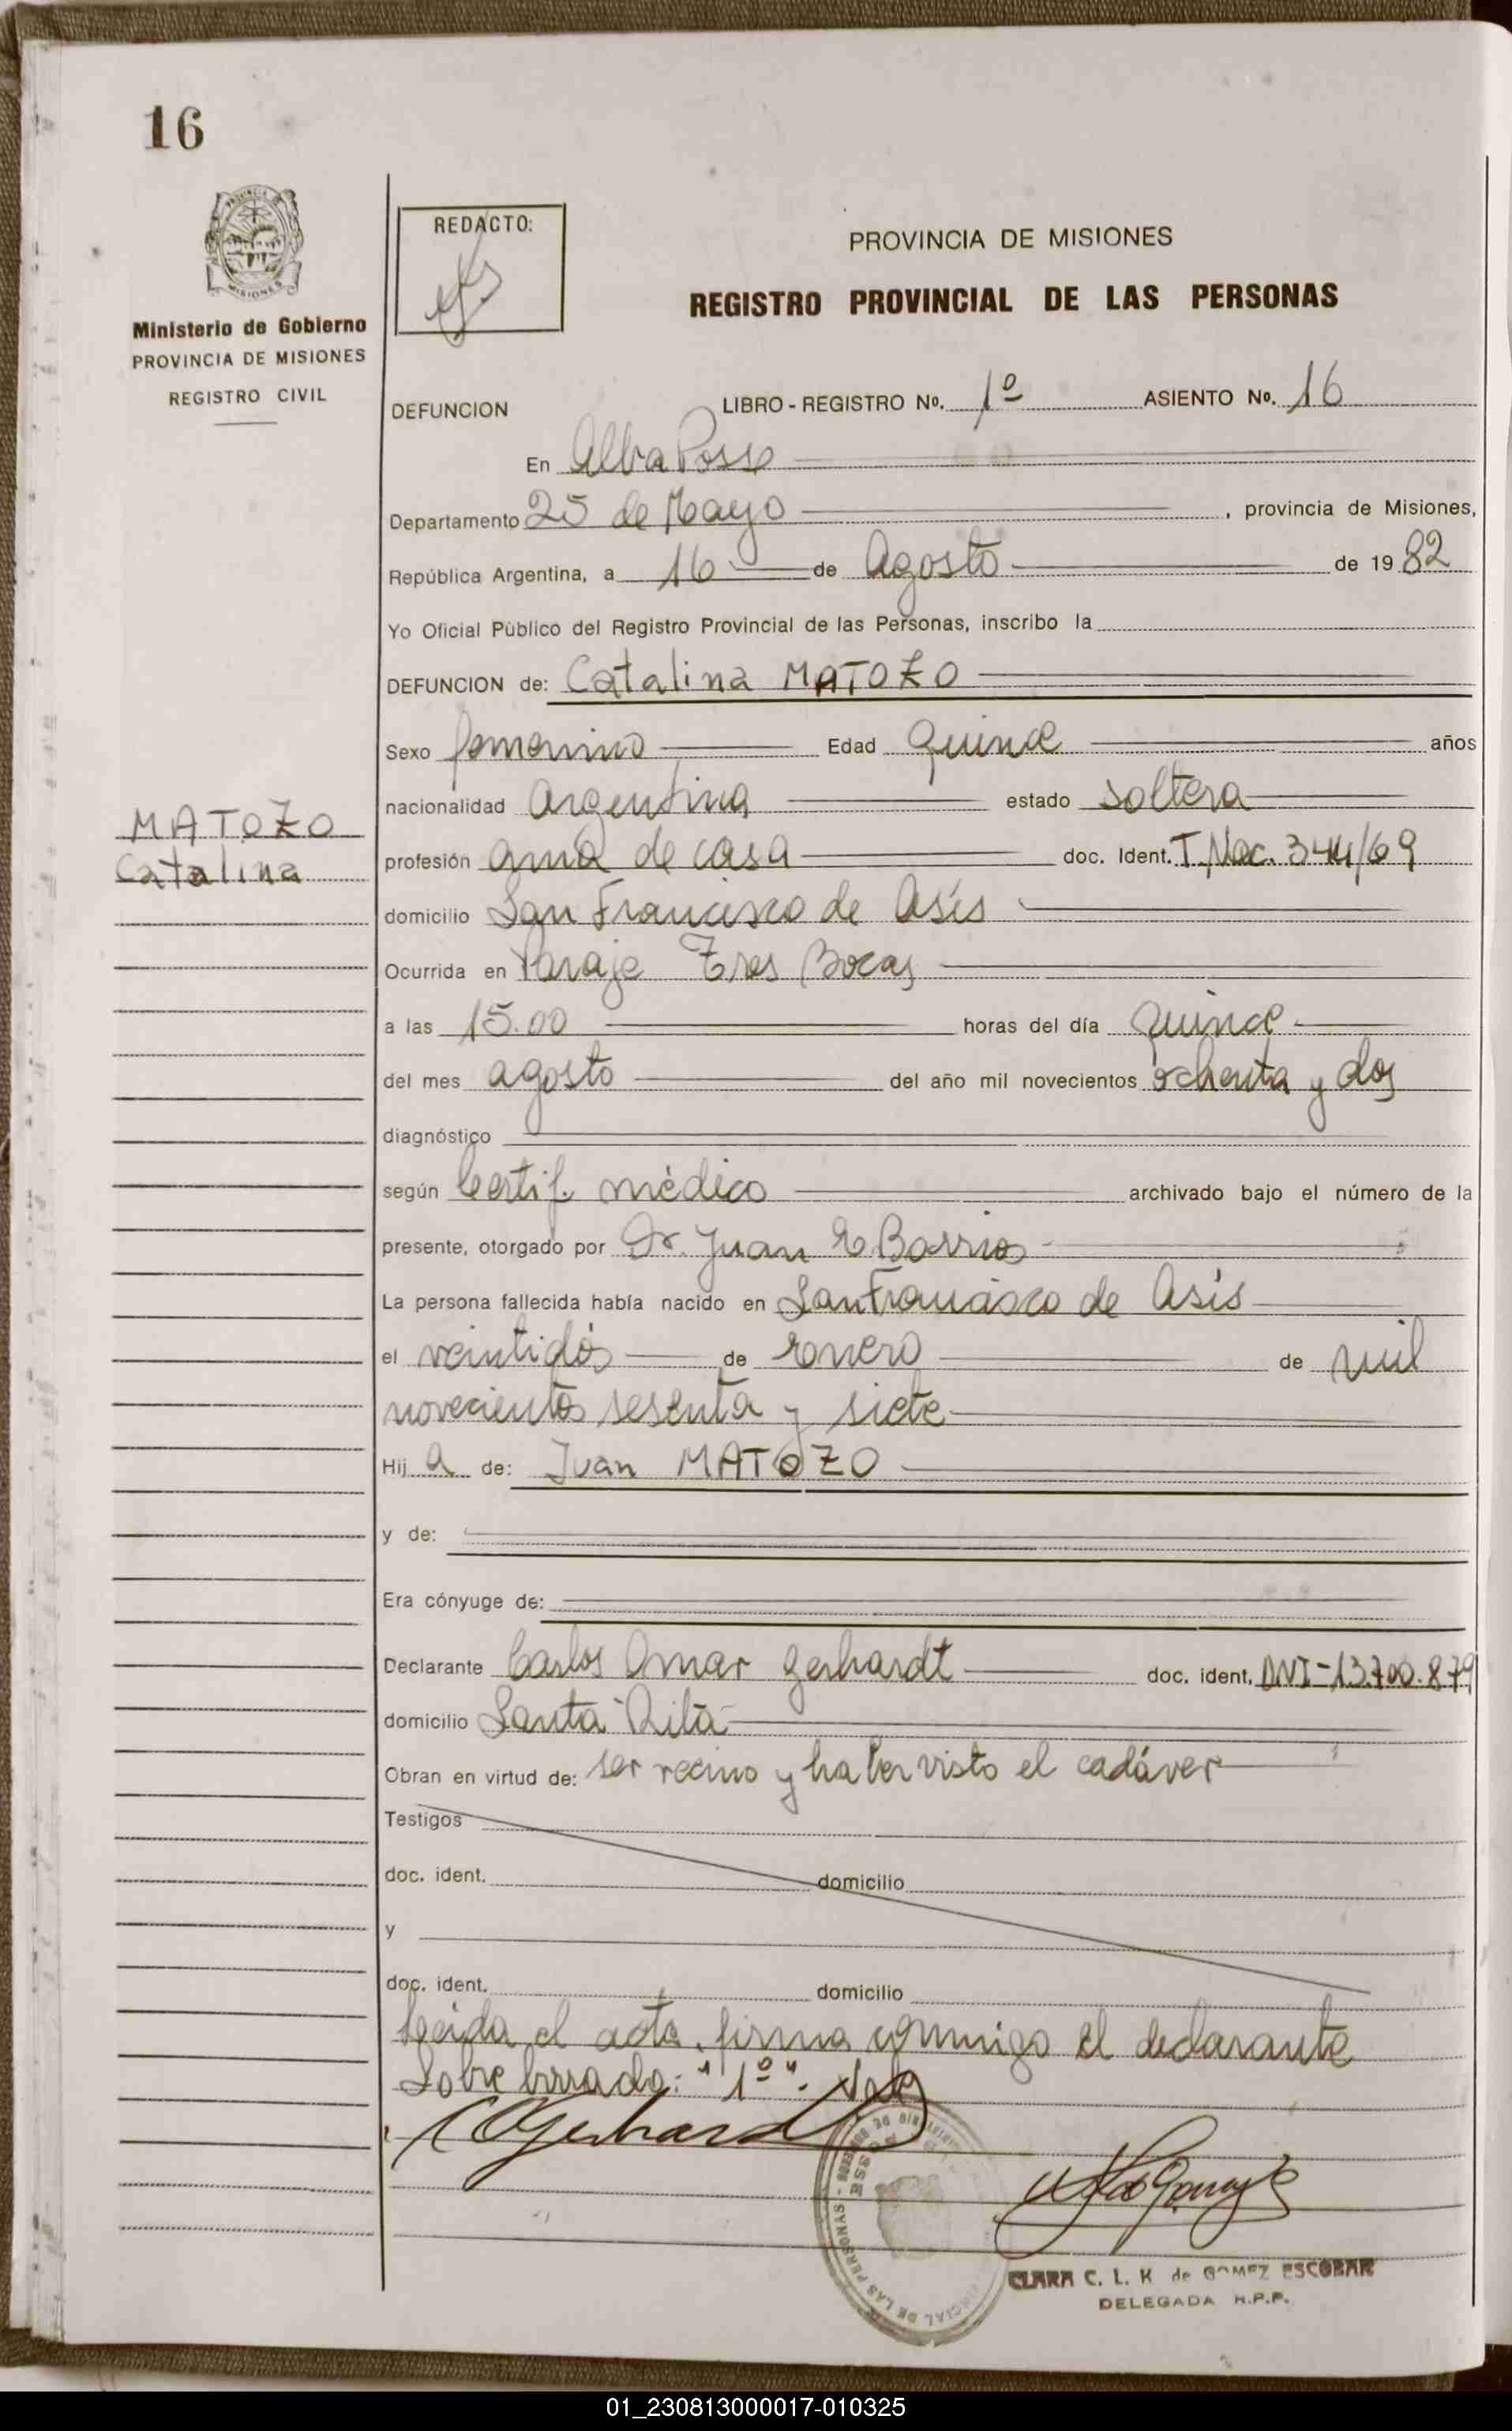 16
PROVINCIA DE
MISIONES
Ministerio de Gobierno
PROVINCIA DE MISIONES
REGISTRO CIVIL
MATOZO
Catalina
REDACTO:
PROVINCIA DE MISIONES
REGISTRO PROVINCIAL DE LAS PERSONAS
DEFUNCION LIBRO - REGISTRO Nº. 1º ASIENTO Nº. 16
En Alba Posse
Departamento 25 de Mayo, provincia de Misiones,
República Argentina, a 16 de Agosto de 19 82
Yo Oficial Público del Registro Provincial de las Personas, inscribo la
DEFUNCION de: Catalina MATOZO
Sexo femenino Edad Quince años
nacionalidad Argentina estado soltera
profesión ama de casa doc. Ident. T. Nac. 344/69
domicilio San Francisco de Asís
Ocurrida en Paraje Tres Bocas
a las 15.00 horas del día Quince
del mes agosto del año mil novecientos ochenta y dos
diagnóstico
según Certif. médico archivado bajo el número de la
presente, otorgado por Dr. Juan E. Barrios
La persona fallecida había nacido en San Francisco de Asís
el veintidós de enero de mil
novecientos sesenta y siete
Hij a de: Juan MATOZO
y de:
Era cónyuge de:
Declarante Carlos Omar Gerhardt doc. ident, DNI-13.700.879
domicilio Santa Rita
Obran en virtud de: ser vecino y haber visto el cadáver
Testigos
doc. ident. domicilio
y
doc. ident. domicilio
Leida el acta, firma conmigo el declarante
Sobre borrado: "1º". Vale
COGerhardt
CLARA C. L. K de GOMEZ ESCOBAR
DELEGADA R.P.P.
01_230813000017-010325